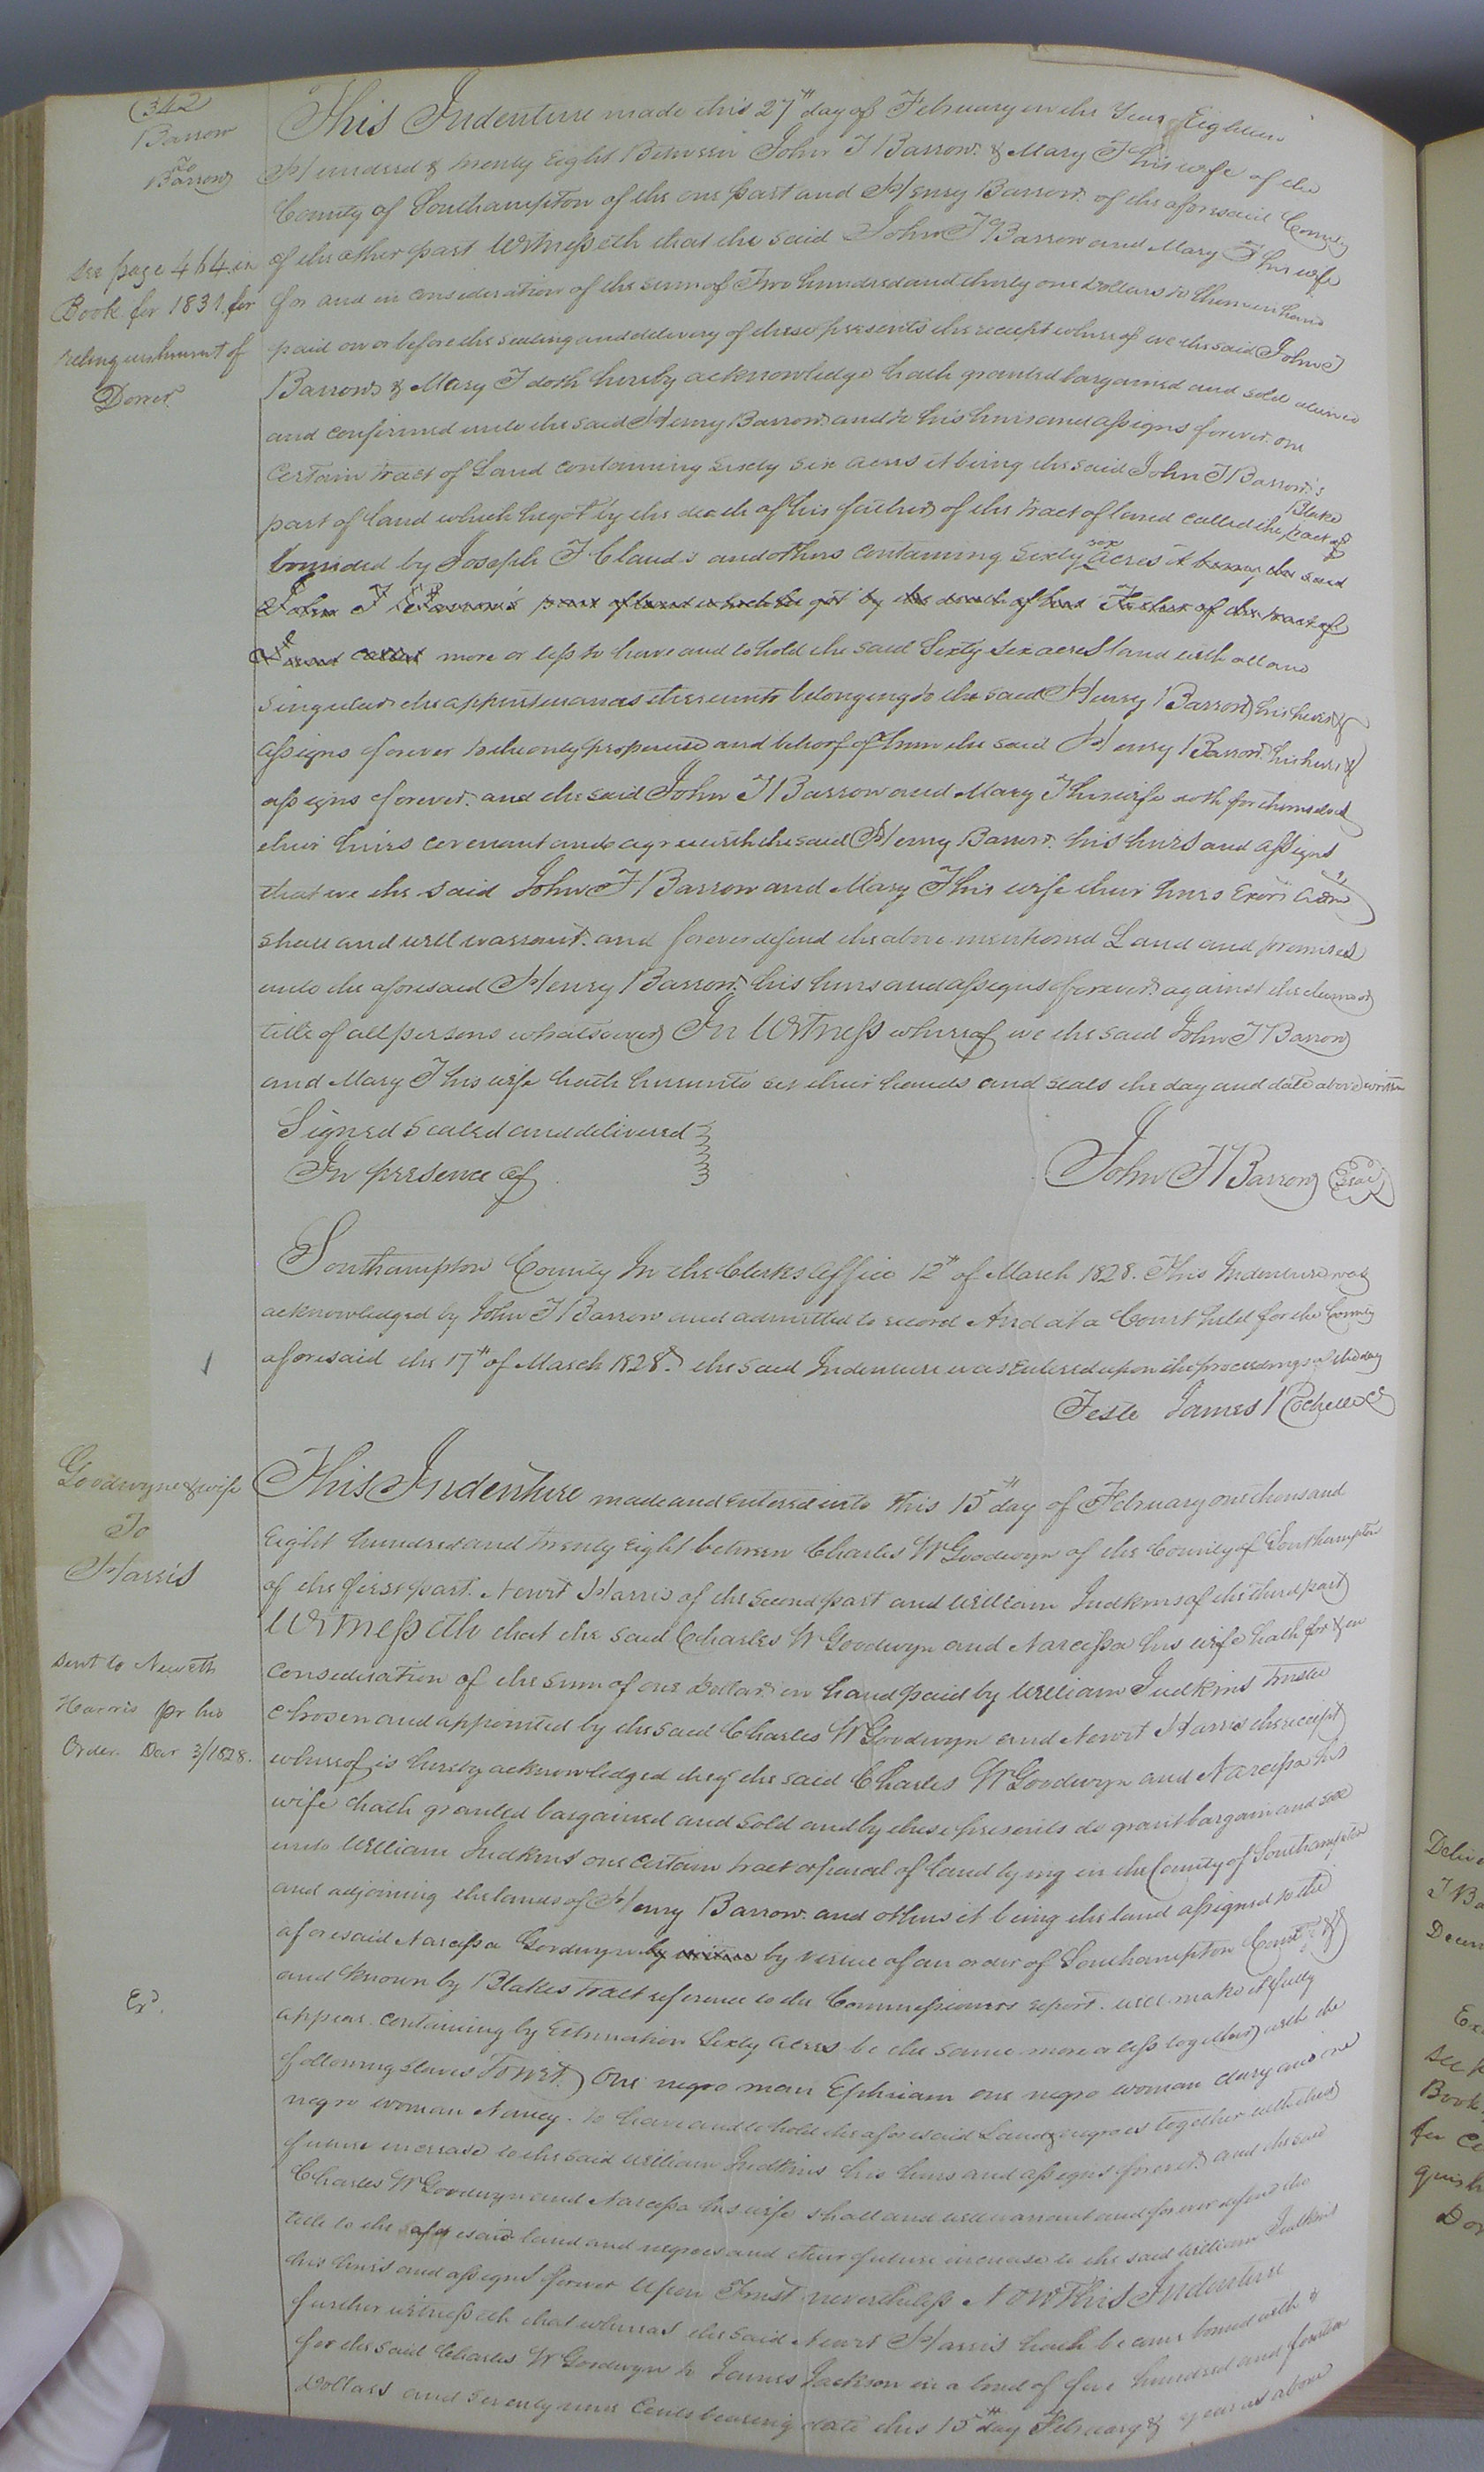 342
Barrow
To
Barrow
See page 464 in
Book for 1831 for
relinquishment of
Dower
This Indenture made this 27th day of February in the Year Eighteen
Hundred & twenty Eight Between John T Barrow & Mary T his wife of the
County of Southampton of the one part and Henry Barrow of the aforesaid County
of the other part Witnesseth that the said John T Barrow and Mary T his wife
for and in consideration of the sum of Two hundred and thirty one Dollars to them in hand
paid on or before the sealing and delivery of these presents the receipt whereof we the said John T
Barrow & Mary T doth hereby acknowledge hath granted bargained and sold aliened
and confirmed unto the said Henry Barrow and to his heirs and assigns forever one
Certain tract of Land containing sixty six acres it being the said John T Barrow's
part of land which he got by the death of his father of the tract of land called the Blake tract &
bounded by Joseph T Claud's and others containing sixty six acres it being the said
John T Barrow's part of land which he got by the death of his Father of the tract of
Land called more or less to have and to hold the said Sixty six acres land with all and
singular the appurtenances thereunto belonging to the said Henry Barrow his heirs &
assigns forever to the only proper use and behoof of him the said Henry Barrow his heirs &
assigns forever. and the said John T Barrow and Mary T his wife doth for themselves
their heirs covenant and agree with the said Henry Barrow his heirs and assigns
that we the said John T Barrow and Mary T his wife their heirs Exors Adm
shall and will warrant and forever defend the above mentioned Land and premises
unto the aforesaid Henry Barrow his heirs and assigns forever against the claim or
title of all persons whatsoever In Witness whereof we the said John T Barrow
and Mary T his wife hath hereunto set their hands and seals the day and date above written
Signed Sealed and delivered
In presence of
John T Barrow Seal
Southampton County In the Clerks Office 12th of March 1828. This Indenture was
acknowledged by John T Barrow and admitted to record And at a Court held for the County
aforesaid the 17th of March 1828. the said Indenture was Entered upon the proceedings of the day
Teste James Rochelle C
Goodwyne & wife
To
Harris
Sent to Neweth
Harris pr his
Order Decr 3/1828.
Exd.
This Indenture made and entered into this 15th day of February one thousand
Eight hundred and twenty Eight between Charles W Goodwyn of the County of Southampton
of the first part. Newit Harris of the second part and William Judkins of the third part
Witnesseth that the said Charles W Goodwyn and Narcissa his wife hath for & in
consideration of the sum of one Dollar in hand paid by William Judkins trustee
chosen and appointed by the said Charles W Goodwyn and Newit Harris the receipt
whereof is hereby acknowledged they the said Charles W Goodwyn and Narcissa his
wife hath granted bargained and sold and by these presents do grant bargain and sell
unto William Judkins one certain tract or parcel of land lying in the County of Southampton
and adjoining the lands of Henry Barrow and others it being the land assigned to the
aforesaid Narcissa Goodwyn by virtue by virtue of an order of Southampton Court &
and known by Blakes tract reference to the Commissioners report will make it fully
appear. containing by Estimation Sixty acres be the same more or less together with the
following slaves Towit) One negro man Ephriam one negro woman Clary and one
negro woman Nancy. To have and to hold the aforesaid Land & negroes together with their
future increase to the said William Judkins his heirs and assigns forever and the said
Charles W Goodwyn and Narcissa his wife shall and will warrant and forever defend the
title to the aforesaid land and negroes and their future increase to the said William Judkins
his heirs and assigns forever Upon Trust nevertheless Now This Indenture
further witnesseth that whereas the said Newit Harris hath become bound with &
for the said Charles W Goodwyn to James Jackson in a bond of five hundred and fourteen
Dollars and seventy nine Cents bearing date this 15th day February & year as above
T Ba
Decem
See p
Book
for
quish
Do